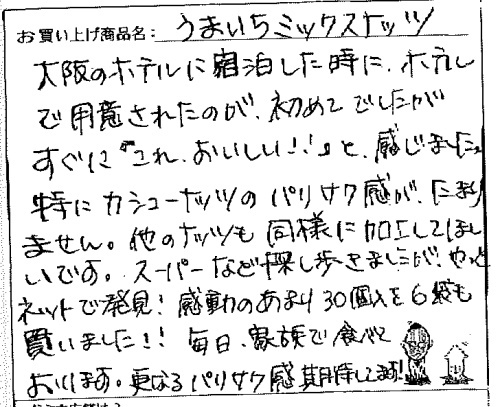 お買い上げ商品名: うまいちミックスナッツ
大阪のホテルに宿泊した時に、ホテル
で用意されたのが、初めてでしたが
すぐに『これ、おいしい!!』と、感じました。
特にカシューナッツのパリサク感が、たまり
ません。他のナッツも同様に加工してほし
いです。スーパーなど探し歩きましたが、やっと
ネットで発見!感動のあまり30個入を6袋も
買いました!!毎日、家族で食べて
おります。更なるパリサク感期待してます!